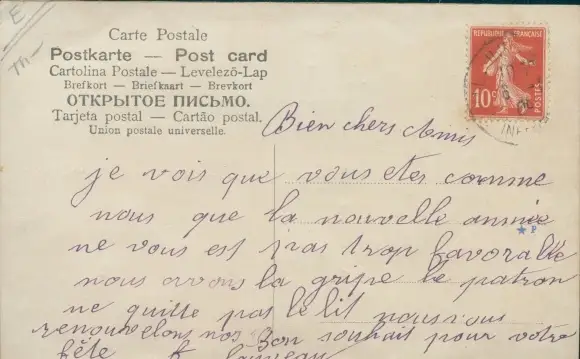 Carte Postale
Postkarte — Post card
Cartolina Postale — Levelező-Lap
Brefkort — Briefkaart — Brevkort
ОТКРЫТОЕ ПИСЬМО.
Tarjeta postal — Cartão postal.
Union postale universelle.
E
REPUBLIQUE FRANÇAISE
10c
POSTES
Bien chers Amis
je vois que vous etes comme
nous que la nouvelle année
P
ne vous est pas trop favorable
nous avons la gripe le patron
ne quitte pas le lit nous vous
renouvelons nos Bon souhait pour votre
fête